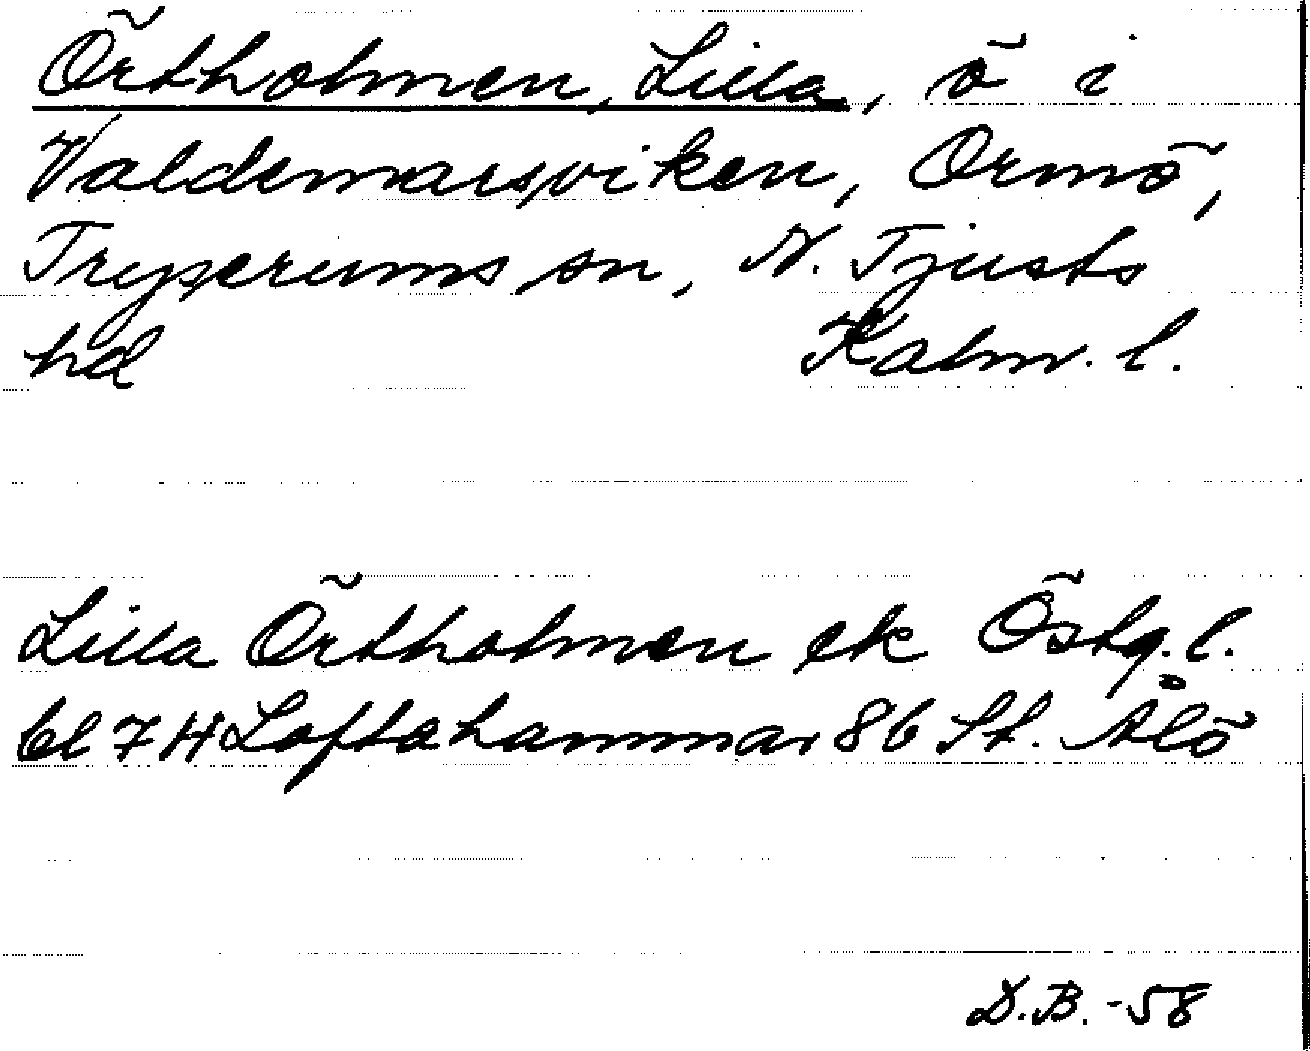 Örtholmen, Lilla, ö i
Valdemarsviken, Ormö,
Tryserums sn, N. Tjusts
hd Kalm. l.
Lilla Örtholmen ek Östg. l.
bl 7 H Loftahammar 86 St. Ålö
D.B. -58